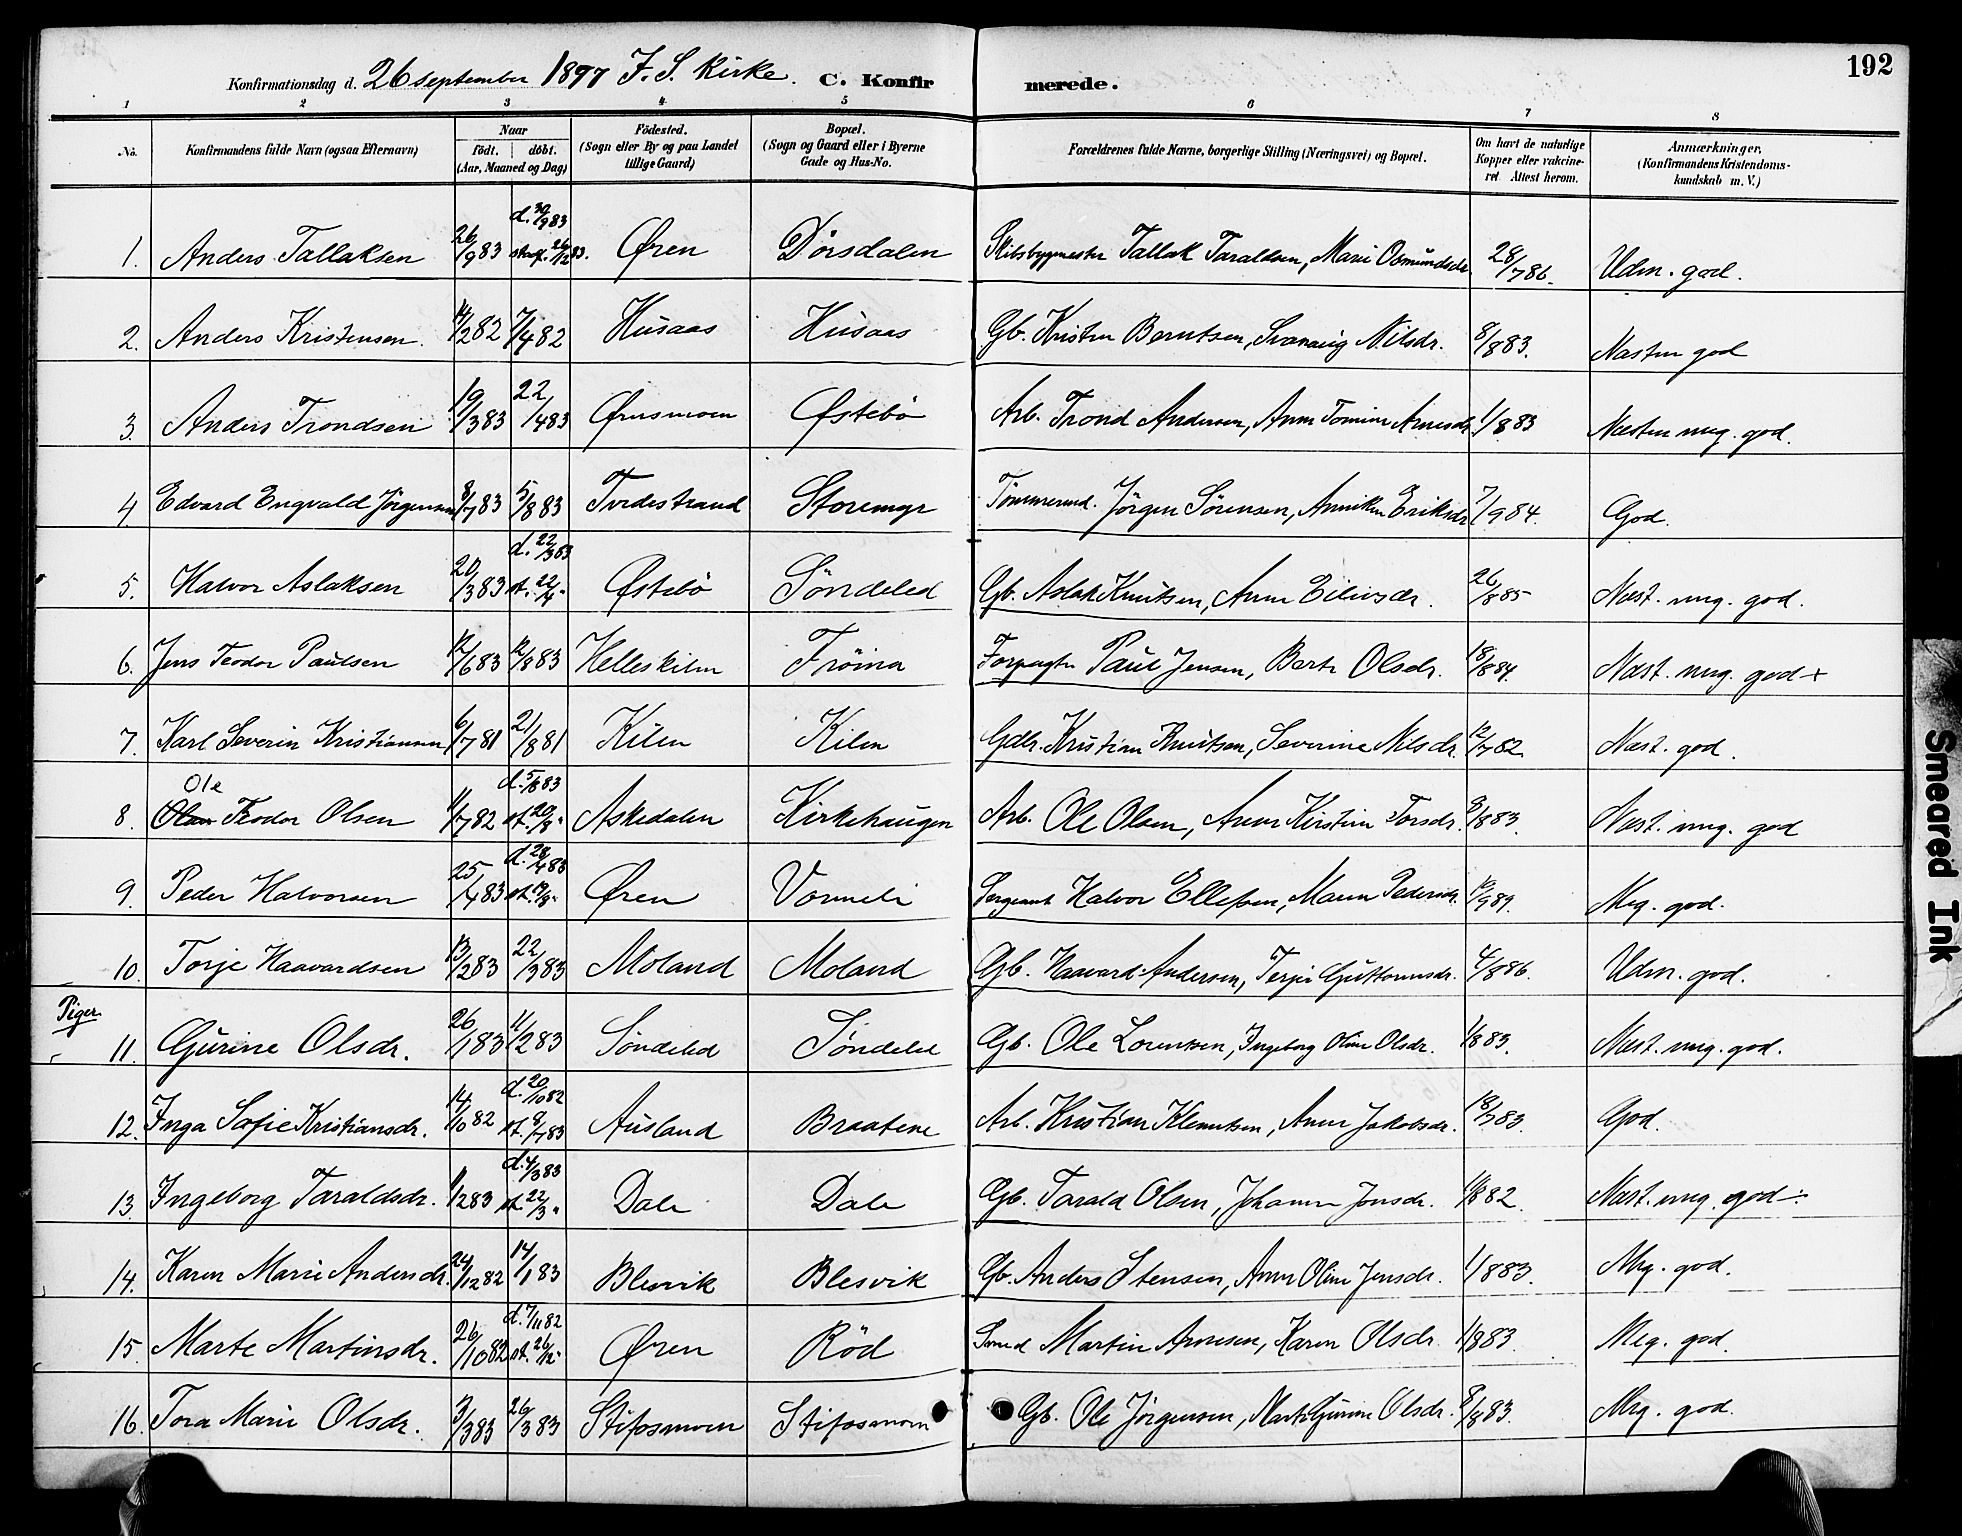 192
Konfirmationsdag d. 26 september 1897 F. S. Kirke. C. Konfirmerede.
1 2 3 4 5 6 7 8
No. Konfirmandens fulde Navn (ogsaa Efternavn) Naar födt. döbt. (Aar, Maaned og Dag) Födested. (Sogn eller By og paa Landet tillige Gaard) Bopæl. (Sogn og Gaard eller i Byerne Gade og Hus-No. Forældrenes fulde Navne, borgerlige Stilling (Næringsvei) og Bopæl. Om havt de naturlige Kopper eller vakcineret Attest herom. Anmærkninger, (Konfirmandens Kristendomskundskab m. V.)
1. Anders Tallaksen 26/9 83 d. 30/9 83 stadf. 26/12 83. Øren Dørsdalen Skibsbygmester Tallak Taraldsen, Marie Osmundsdr. 28/7 86. Udm. god.
2. Anders Kristensen. 14/2 82 7/4 82 Husaas Husaas Gb. Kristen Berntsen, Svanaug Nilsdr. 8/8 83. Næsten god
3. Anders Trondsen 19/3 83 22/4 83 Ørensmoen Østebö Arb. Trond Andersen, Anne Tomine Arnesdr. 1/8 83 Næsten meg. god.
4. Edvard Engvald Jörgensen 8/7 83 5/8 83 Tvedestrand Storemyr Tömmermd. Jörgen Sørensen, Anniken Eriksdr. 7/9 84. God.
5. Halvor Aslaksen 20/3 83 d. 22/3 83 st. 22/4 " Østebö Söndeled Gb. Aslak Knutsen, Anne Eilivsdr. 26/8 85 Næst. meg. god.
6. Jens Teodor Paulsen 12/6 83 12/8 83 Helleskilen Fröina Forpagter Paul Jensen, Berte Olsdr. 18/8 84. Næst. meg. god +
7. Karl Severin Kristiansen 6/7 81 21/8 81 Kilen Kilen Gdbr. Kristian Knutsen, Severine Nilsdr. 12/7 82. Næst. god.
8. Ole Teodor Olsen 11/7 82 d. 5/8 83 st. 20/8 " Askedalen Kirkehaugen Arb. Ole Olsen, Anne Kirstine Torsdr. 9/8 83. Næst. meg. god
9. Peder Halvorsen 25/4 83 d. 28/4 83 st. 19/8 " Øren Vormeli Sergeant Halvor Ellefsen, Maren Pedersdr. 19/9 89. Meg. god.
10. Torje Haavardsen 13/2 83 22/3 83 Moland Moland Gb. Haavard Andersen, Terjer Guttormsdr. 4/8 86. Udm. god.
Piger.
11. Gurine Olsdr. 26/1 83 11/2 83 Söndeled Söndeled Gb. Ole Lorentsen, Ingeborg Oline Olsdr. 1/8 83. Næst. meg. god.
12. Inga Sofie Kristiansdr. 14/10 82 d. 20/10 82 st. 9/7 83 Ausland Braatene Arb. Kristian Klemetsen, Anne Jakobsdr. 18/7 83. God.
13. Ingeborg Taraldsdr. 1/2 83 d. 4/3 83 st. 22/3 " Dale Dale Gb. Tarald Olsen, Johanne Jonsdr. 11/8 82. Næst. meg. god ÷
14. Karen Marie Andersdr. 24/12 82 14/1 83 Blesvik Blesvik Gb. Anders Stensen, Anne Oline Jensdr. 1/8 83. Meg. god.
15. Marte Martinsdr. 26/10 82 d. 7/11 82 st. 26/12 " Øren Röd Smed Martin Arnesen, Karen Olsdr. 1/8 83. Meg. god.
16. Tora Marie Olsdr. 3/3 83 26/3 83 Stifosmoen Stifosmoen Gb. Ole Jörgensen, Marte Gurine Olsdr. 8/8 83. Meg. god.
Smeared Ink